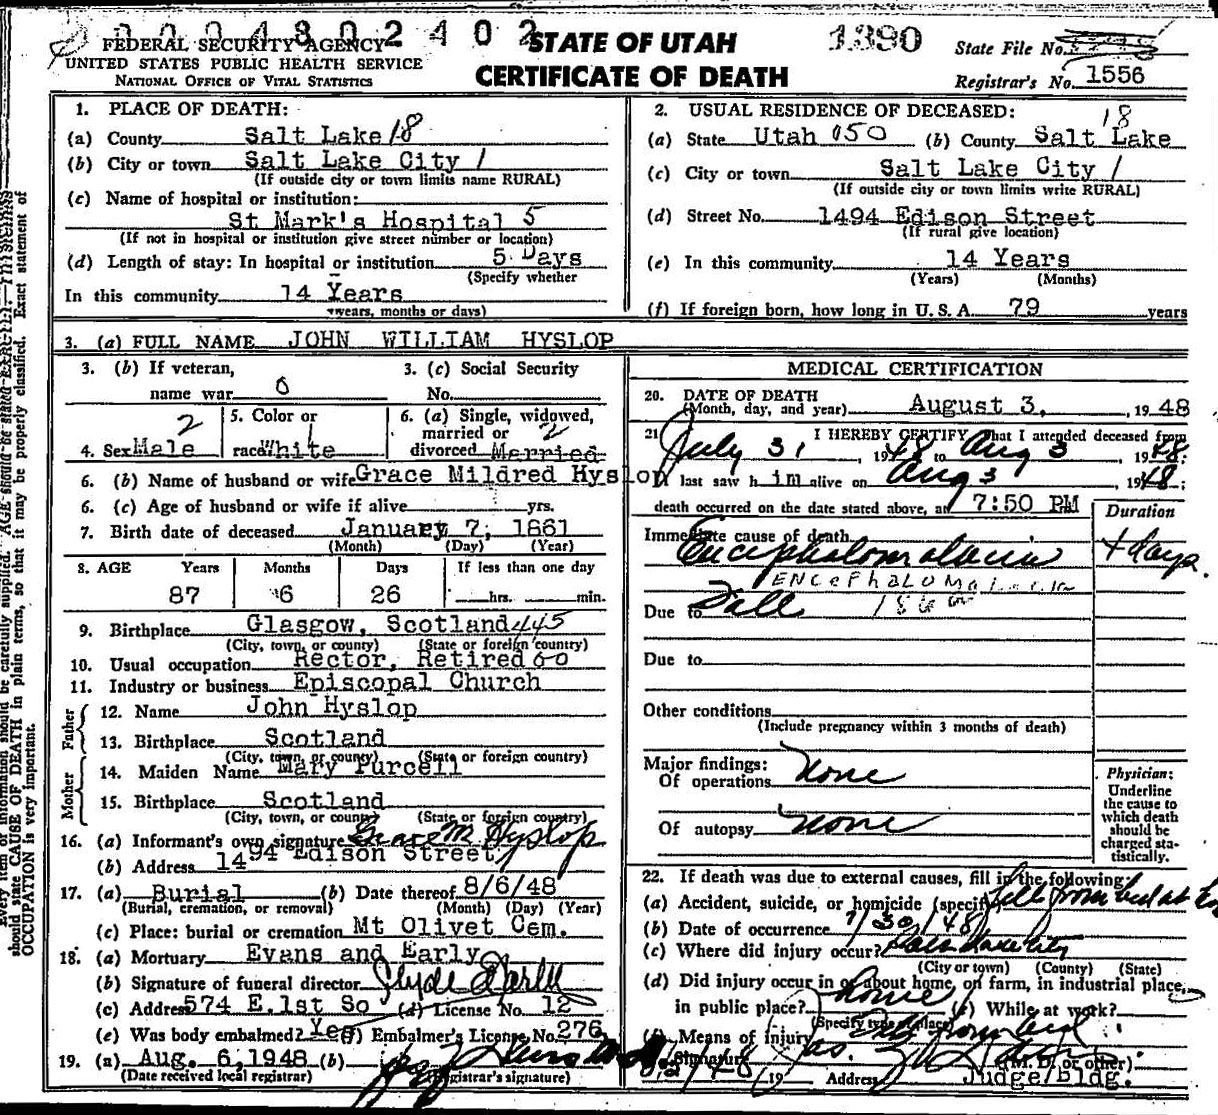 0004802402
FEDERAL SECURITY AGENCY
UNITED STATES PUBLIC HEALTH SERVICE
NATIONAL OFFICE OF VITAL STATISTICS
STATE OF UTAH
CERTIFICATE OF DEATH
1380
State File No.
Registrar's No. 1556
1. PLACE OF DEATH:
(a) County Salt Lake 18
(b) City or town Salt Lake City 1
(If outside city or town limits name RURAL)
(c) Name of hospital or institution:
St Mark's Hospital 5
(If not in hospital or institution give street number or location)
(d) Length of stay: In hospital or institution 5 Days
(Specify whether
In this community 14 Years
years, months or days)
2. USUAL RESIDENCE OF DECEASED:
18
(a) State Utah 050 (b) County Salt Lake
(c) City or town Salt Lake City 1
(If outside city or town limits write RURAL)
(d) Street No. 1494 Edison Street
(If rural give location)
(e) In this community 14 Years
(Years) (Months)
(f) If foreign born, how long in U. S. A. 79 years
3. (a) FULL NAME JOHN WILLIAM HYSLOP
3. (b) If veteran,
name war 0
3. (c) Social Security
No.
4. Sex Male 2
5. Color or
race White 1
6. (a) Single, widowed,
married or 2
divorced Married
6. (b) Name of husband or wife Grace Mildred Hyslop
6. (c) Age of husband or wife if alive yrs.
7. Birth date of deceased January 7, 1861
(Month) (Day) (Year)
8. AGE Years Months Days If less than one day
87 6 26 hrs. min.
9. Birthplace Glasgow, Scotland 445
(City, town, or county) (State or foreign country)
10. Usual occupation Rector, Retired 60
11. Industry or business Episcopal Church
Father
12. Name John Hyslop
13. Birthplace Scotland
(City, town, or county) (State or foreign country)
Mother
14. Maiden Name Mary Purcell
15. Birthplace Scotland
(City, town, or county) (State or foreign country)
16. (a) Informant's own signature Grace M Hyslop
(b) Address 1494 Edison Street
17. (a) Burial (b) Date thereof 8/6/48
(Burial, cremation, or removal) (Month) (Day) (Year)
(c) Place: burial or cremation Mt Olivet Cem.
18. (a) Mortuary Evans and Early
(b) Signature of funeral director Clyde Early
(c) Address 574 E.1st So (d) License No. 12
(e) Was body embalmed? Yes (f) Embalmer's License No. 276
19. (a) Aug. 6, 1948 (b)
(Date received local registrar) (Registrar's signature)
MEDICAL CERTIFICATION
20. DATE OF DEATH
(Month, day, and year) August 3, 1948
21. I HEREBY CERTIFY that I attended deceased from
July 31, 1948 to Aug 3 1948;
I last saw him alive on Aug 3, 1948;
death occurred on the date stated above, at 7:50 PM
Duration
Immediate cause of death
Encephalomalacia 4 days.
ENCEPHALOMALACIA
Due to Fall 186
Due to
Other conditions
(Include pregnancy within 3 months of death)
Major findings:
Of operations none
Of autopsy none
Physician:
Underline
the cause to
which death
should be
charged sta-
tistically.
22. If death was due to external causes, fill in the following:
(a) Accident, suicide, or homicide (specify) fell from bed at
(b) Date of occurrence 7/30/48
(c) Where did injury occur? Salt Lake City
(City or town) (County) (State)
(d) Did injury occur in or about home, on farm, in industrial place,
in public place? home (e) While at work?
(Specify type of place)
(f) Means of injury Fall from bed
23. Signature Jas. (M. D. or other)
/48 19 Address Judge Bldg.
Every item of information should be carefully supplied. AGE should be stated EXACTLY. PHYSICIANS
should state CAUSE OF DEATH in plain terms, so that it may be properly classified. Exact statement of
OCCUPATION is very important.